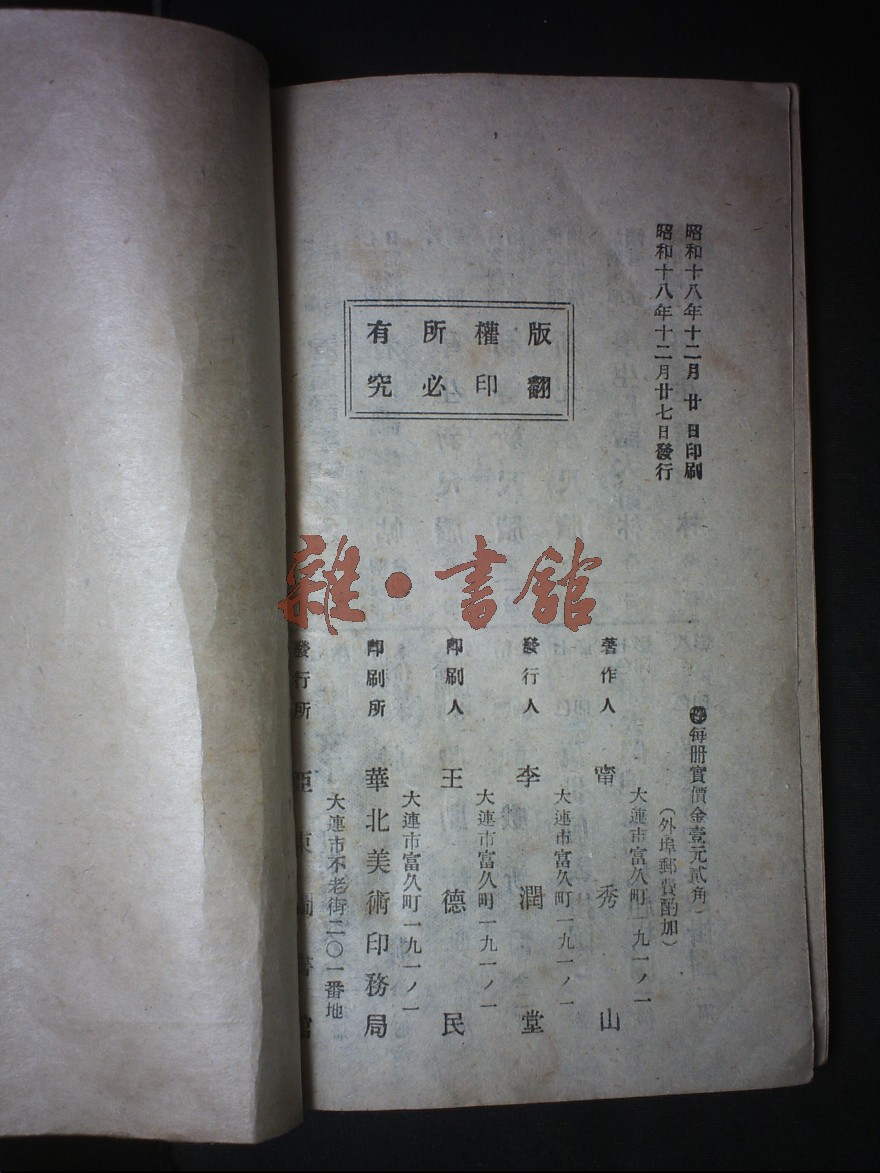 昭和十八年十二月廿日印刷
昭和十八年十二月廿七日發行
版權所有
翻印必究
雜·書館
㊞每冊實價金壹元貳角
(外埠郵費酌加)
大連市富久町一九一ノ一
著作人 甯秀山
大連市富久町一九一ノ一
發行人 李潤堂
大連市富久町一九一ノ一
印刷人 王德民
大連市富久町一九一ノ一
印刷所 華北美術印務局
大連市不老街二〇一番地
發行所 亞東圖書館